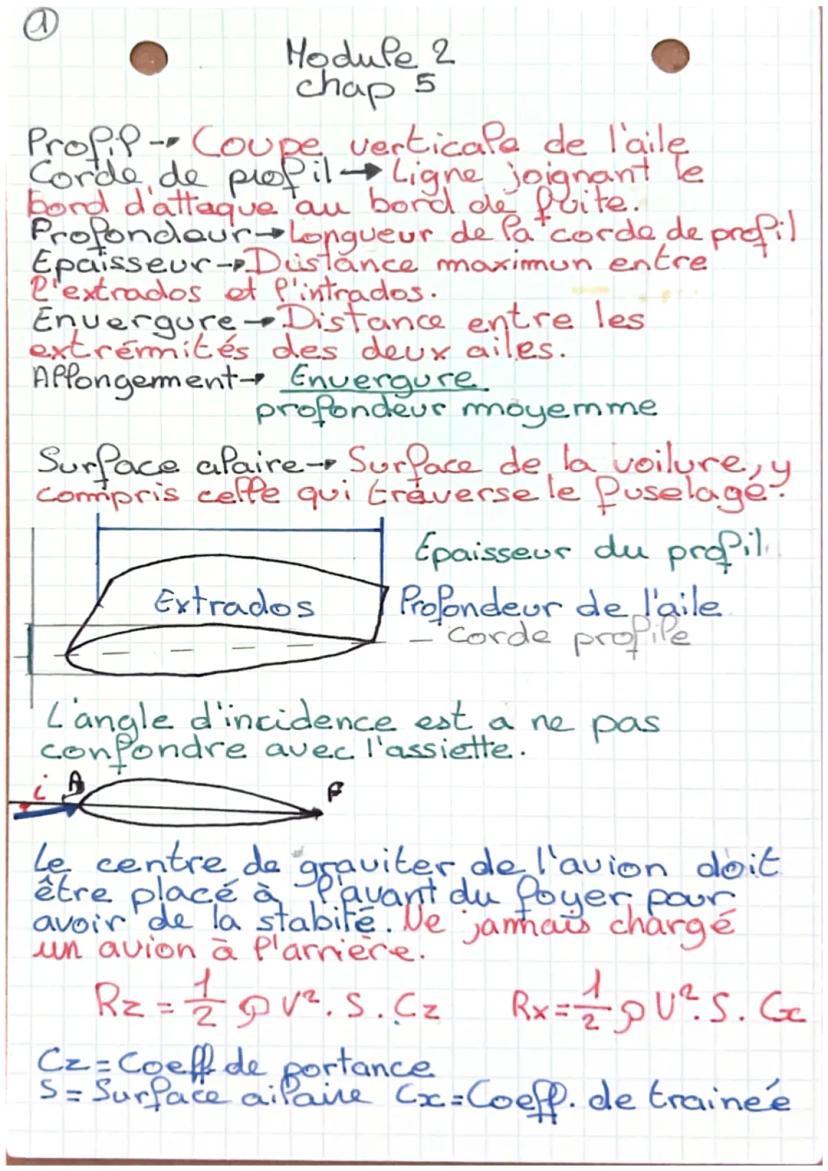 1
Module 2
chap 5
Profil → Coupe verticale de l'aile
Corde de profil → Ligne joignant le
bord d'attaque au bord de fuite.
Profondeur → Longueur de la corde de profil
Epaisseur → Distance maximun entre
l'extrados et l'intrados.
Envergure → Distance entre les
extrémités des deux ailes.
Allongement → Envergure
profondeur moyemme
Surface alaire → Surface de la voilure, y
compris celle qui traverse le fuselage.
Epaisseur du profil
Extrados Profondeur de l'aile
- Corde profile
L'angle d'incidence est a ne pas
confondre avec l'assiette.
i A F
Le centre de graviter de l'avion doit
être placé à l'avant du foyer pour
avoir de la stabité. Ne jamais chargé
un avion à l'arrière.
Rz = 1/2 ρ V². S. Cz Rx = 1/2 ρ V². S. Cx
Cz = Coeff de portance
S = Surface ailaire Cx = Coeff. de trainée